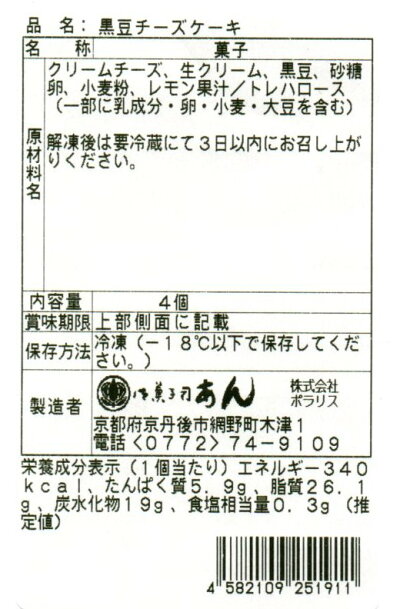 品 名: 黒豆チーズケーキ
名 称 菓子
原材料名
クリームチーズ、生クリーム、黒豆、砂糖
卵、小麦粉、レモン果汁/トレハロース
(一部に乳成分・卵・小麦・大豆を含む)
解凍後は要冷蔵にて3日以内にお召し上が
りください。
内容量 4個
賞味期限 上部側面に記載
保存方法 冷凍(-18℃以下で保存してくだ
さい。)
製造者 御菓子司 あん 株式会社
ポラリス
京都府京丹後市網野町木津1
電話<0772>74-9109
栄養成分表示(1個当たり)エネルギー340
kcal、たんぱく質5.9g、脂質26.1
g、炭水化物19g、食塩相当量0.3g(推
定値)
4 582109 251911